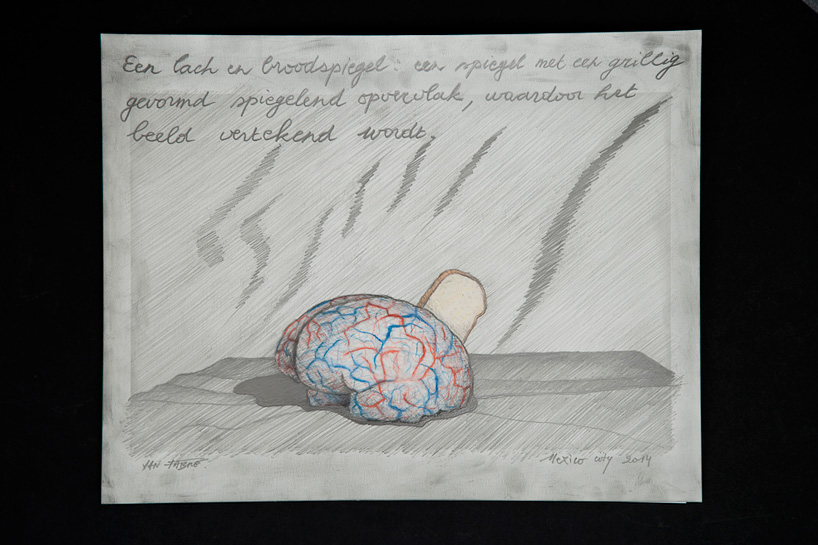 Een lach en broodspiegel: een spiegel met een grillig
gevormd spiegelend oppervlak, waardoor het
beeld vertekend wordt.
JAN FABRE
Mexico city 2014